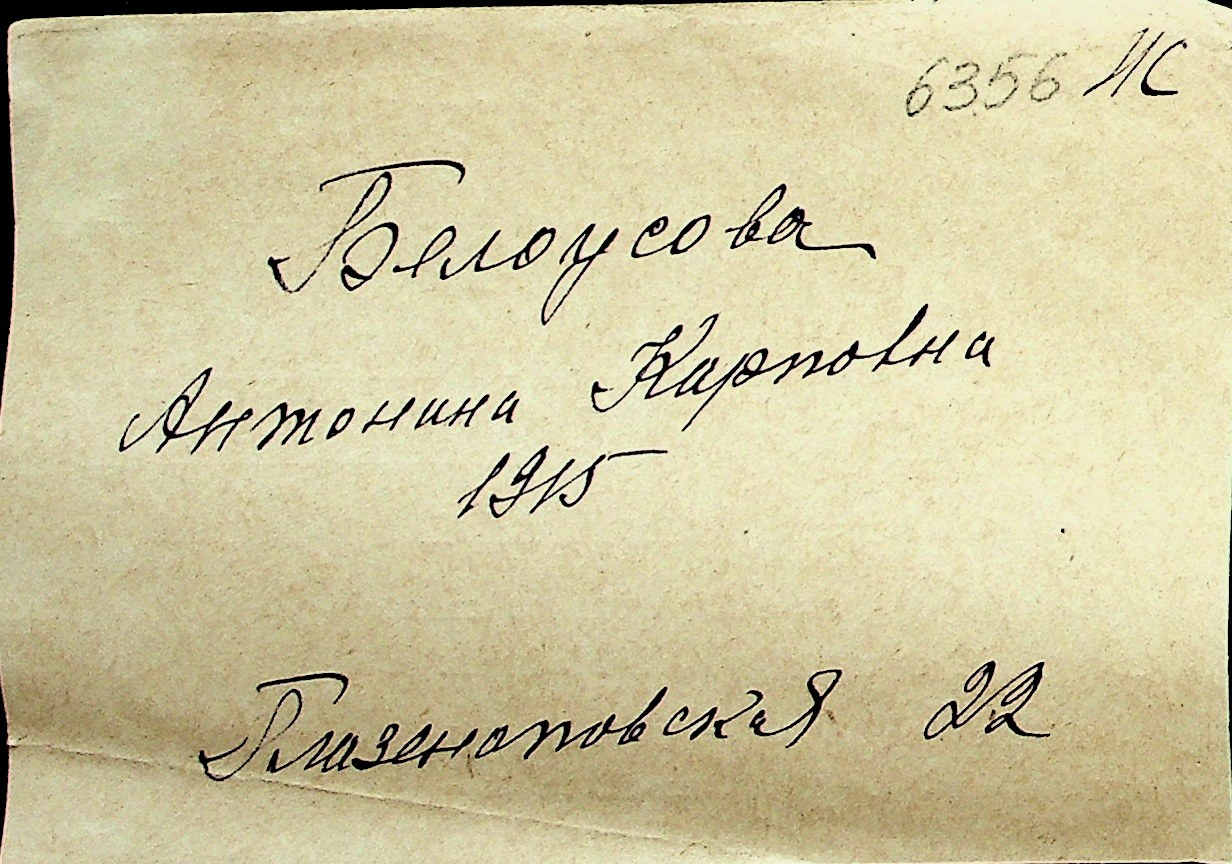 6356 ИС
Белоусова
Антонина Карповна
1915
Глазенаповская 22